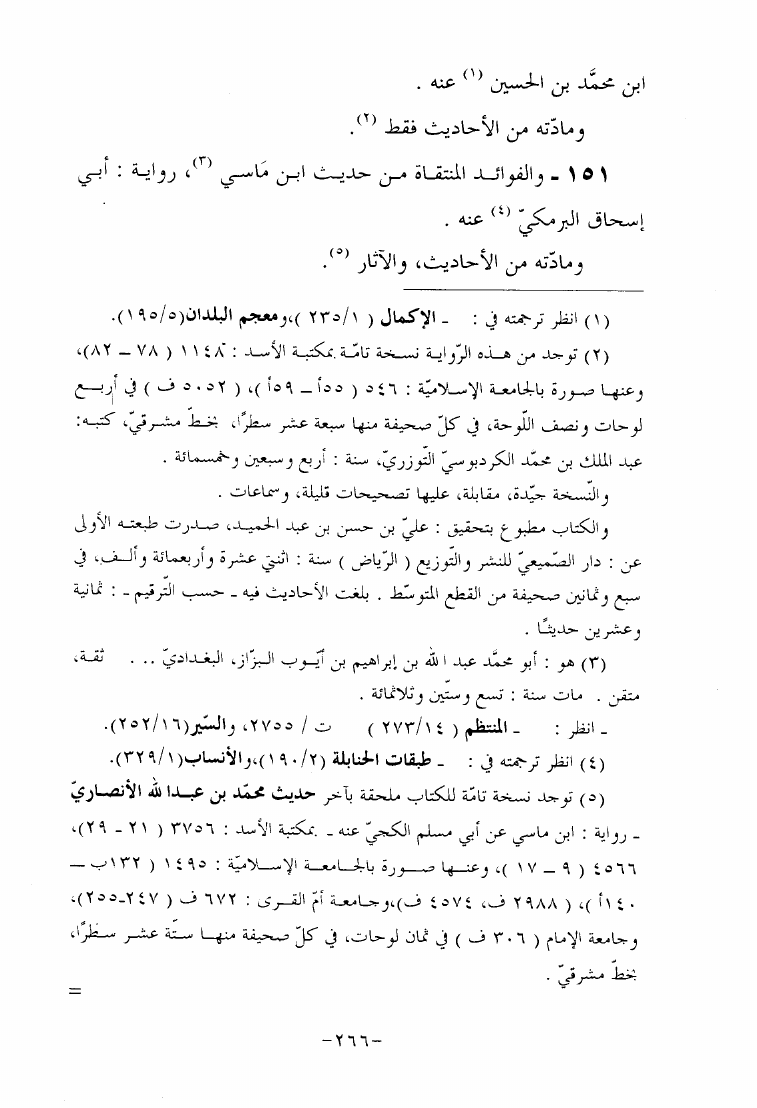 ابن محمَّد بن الحسين (١) عنه .
ومادّته من الأحاديث فقط (٢).
١٥١ - والفوائد المنتقاة من حديث ابن مَاسي (٣)، رواية : أبي
إسحاق البرمكيّ (٤) عنه .
ومادّته من الأحاديث، والآثار (٥).
(١) انظر ترجمته في : - الإكمال ( ٢٣٥/١ )،ومعجم البلدان(١٩٥/٥).
(٢) توجد من هذه الرّواية نسخة تامّة بمكتبة الأسد : ١١٤٨ ( ٧٨ – ٨٢)،
وعنها صورة بالجامعة الإسلاميّة : ٥٤٦ ( ٥٥أ – ٥٩أ )، ( ٥٠٥٢ ف ) في أربع
لوحات ونصف اللّوحة، في كلّ صحيفة منها سبعة عشر سطرًا، بخطّ مشرقيّ، كتبه:
عبد الملك بن محمّد الكردبوسيّ التّوزريّ، سنة : أربع وسبعين وخمسمائة .
والنّسخة جيّدة، مقابلة، عليها تصحيحات قليلة، وسماعات .
والكتاب مطبوع بتحقيق : عليّ بن حسن بن عبد الحميد، صدرت طبعته الأولى
عن : دار الصّميعيّ للنشر والتّوزيع ( الرّياض ) سنة : اثنتي عشرة وأربعمائة وألف، في
سبع وثمانين صحيفة من القطع المتوسّط . بلغت الأحاديث فيه - حسب التّرقيم - : ثمانية
وعشرين حديثًا .
(٣) هو : أبو محمَّد عبد الله بن إبراهيم بن أيّوب البزّاز، البغداديّ ... . ثقة،
متقن . مات سنة : تسع وستّين وثلاثمائة .
- انظر : - المنتظم ( ٢٧٣/١٤ ) ت / ٢٧٥٥، والسّير(٢٥٢/١٦).
(٤) انظر ترجمته في : - طبقات الحنابلة (١٩٠/٢)،والأنساب(٣٢٩/١).
(٥) توجد نسخة تامّة للكتاب ملحقة بآخر حديث محمّد بن عبدالله الأنصاريّ
- رواية : ابن ماسي عن أبي مسلم الكجيّ عنه - بمكتبة الأسد : ٣٧٥٦ ( ٢١ - ٢٩)،
٤٥٦٦ ( ٩ – ١٧ )، وعنها صورة بالجامعة الإسلاميّة : ١٤٩٥ ( ١٣٢ب –
١٤٠أ )، ( ٢٩٨٨ ف، ٤٥٧٤ ف)،وجامعة أمّ القرى : ٦٧٢ ف ( ٢٤٧-٢٥٥)،
وجامعة الإمام ( ٣٠٦ ف ) في ثمان لوحات، في كلّ صحيفة منها ستّة عشر سطرًا،
بخطّ مشرقيّ .
=
-٢٦٦-